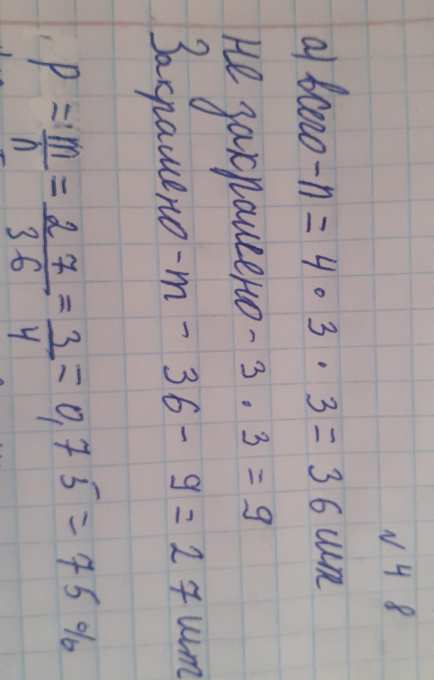 N 48
а) всего - n = 4 · 3 · 3 = 36 шт
Не закрашено - 3 · 3 = 9
Закрашено - m - 36 - 9 = 27 шт
P = m/n = 27/36 = 3/4 = 0,75 = 75%